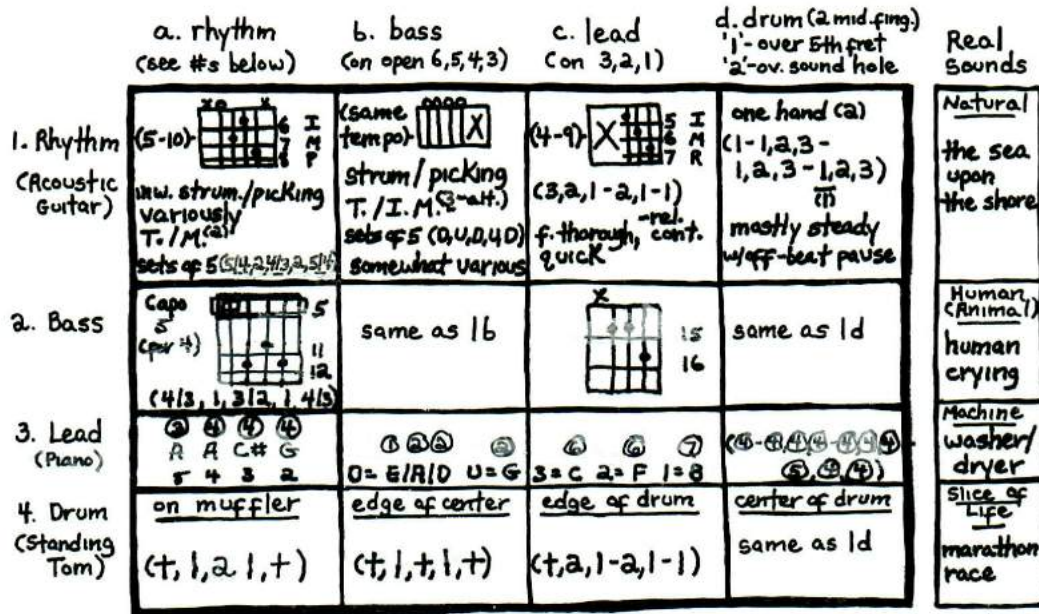 a. rhythm
(see #s below)
b. bass
(on open 6,5,4,3)
c. lead
(on 3,2,1)
d. drum (2 mid. fing.)
'1'- over 5th fret
'2'-ov. sound hole
Real
Sounds
1. Rhythm
(Acoustic
Guitar)
(5-10)-
x o x
6 I
7 M
8 P
strum./picking
variously
T./M.(2)
sets of 5
(same
tempo)
0000
X
strum/picking
T./I.M.
sets of 5 (D,U,D,U,D)
somewhat various
(4-9)-
X
5 I
6 M
7 R
(3,2,1-2,1-1)
f. thorough, -rel. cont.
quick
one hand (2)
(1-1,2,3-
1,2,3-1,2,3)
(1)
mostly steady
w/off-beat pause
Natural
the sea
upon
the shore
2. Bass
Capo
5
5
11
12
(4/3, 1, 3/2, 1, 4/3)
same as 1b
x
15
16
same as 1d
Human
(Animal)
human
crying
3. Lead
(Piano)
3 4 4 4
A A C# G
5 4 3 2
1 2 2 2
D= E/A/D U= G
6 6 7
3=C 2=F 1=B
5, 4, 4)
Machine
washer/
dryer
4. Drum
(Standing
Tom)
on muffler
(t, 1, 2 1, t)
edge of center
(t, 1, t, 1, t)
edge of drum
(t, 2, 1-2, 1-1)
center of drum
same as 1d
Slice of
Life
marathon
race